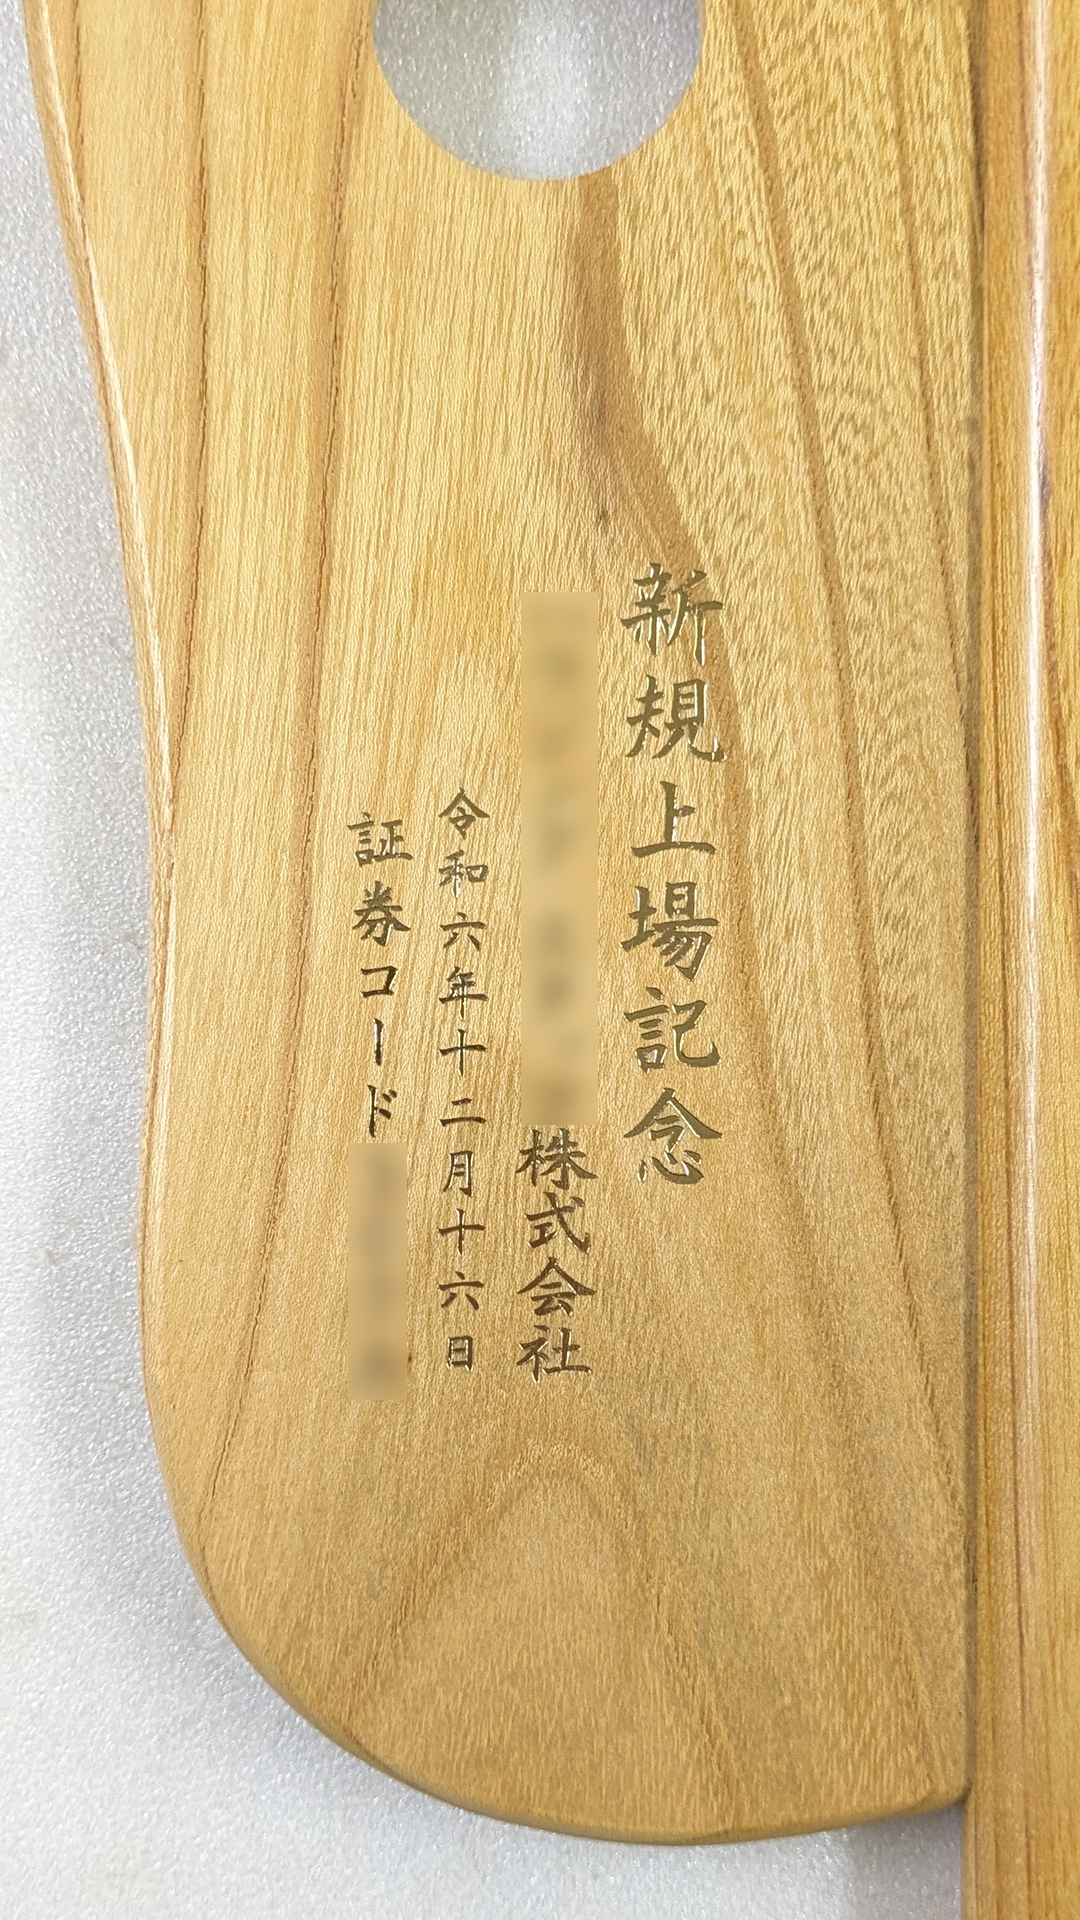 新規上場記念
株式会社
令和六年十二月十六日
証券コード